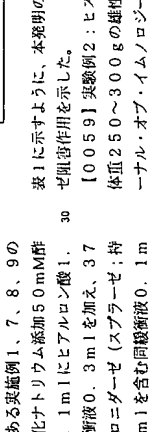 ある実施例1、7、8、9の
化ナトリウム添加50mM酢
．1mlにヒアルロン酸1．
衝液0．3mlを加え、37
ロニダーゼ（スプラーゼ；持
mlを含む同緩衝液0．1m
30
表1に示すように、本発明の
ゼ阻害作用を示した。
【0059】実験例2：ヒス
体重250～300gの雄性
ーナル・オブ・イムノロジー